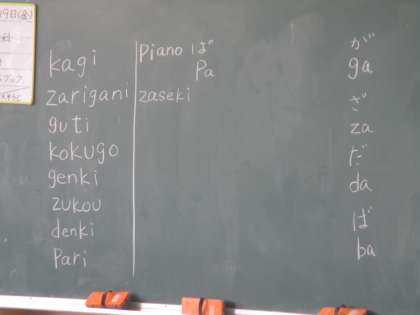 kagi
zarigani
guti
kokugo
genki
zukou
denki
Pari
Piano ば
Pa
zaseki
が
ga
ざ
za
だ
da
ば
ba